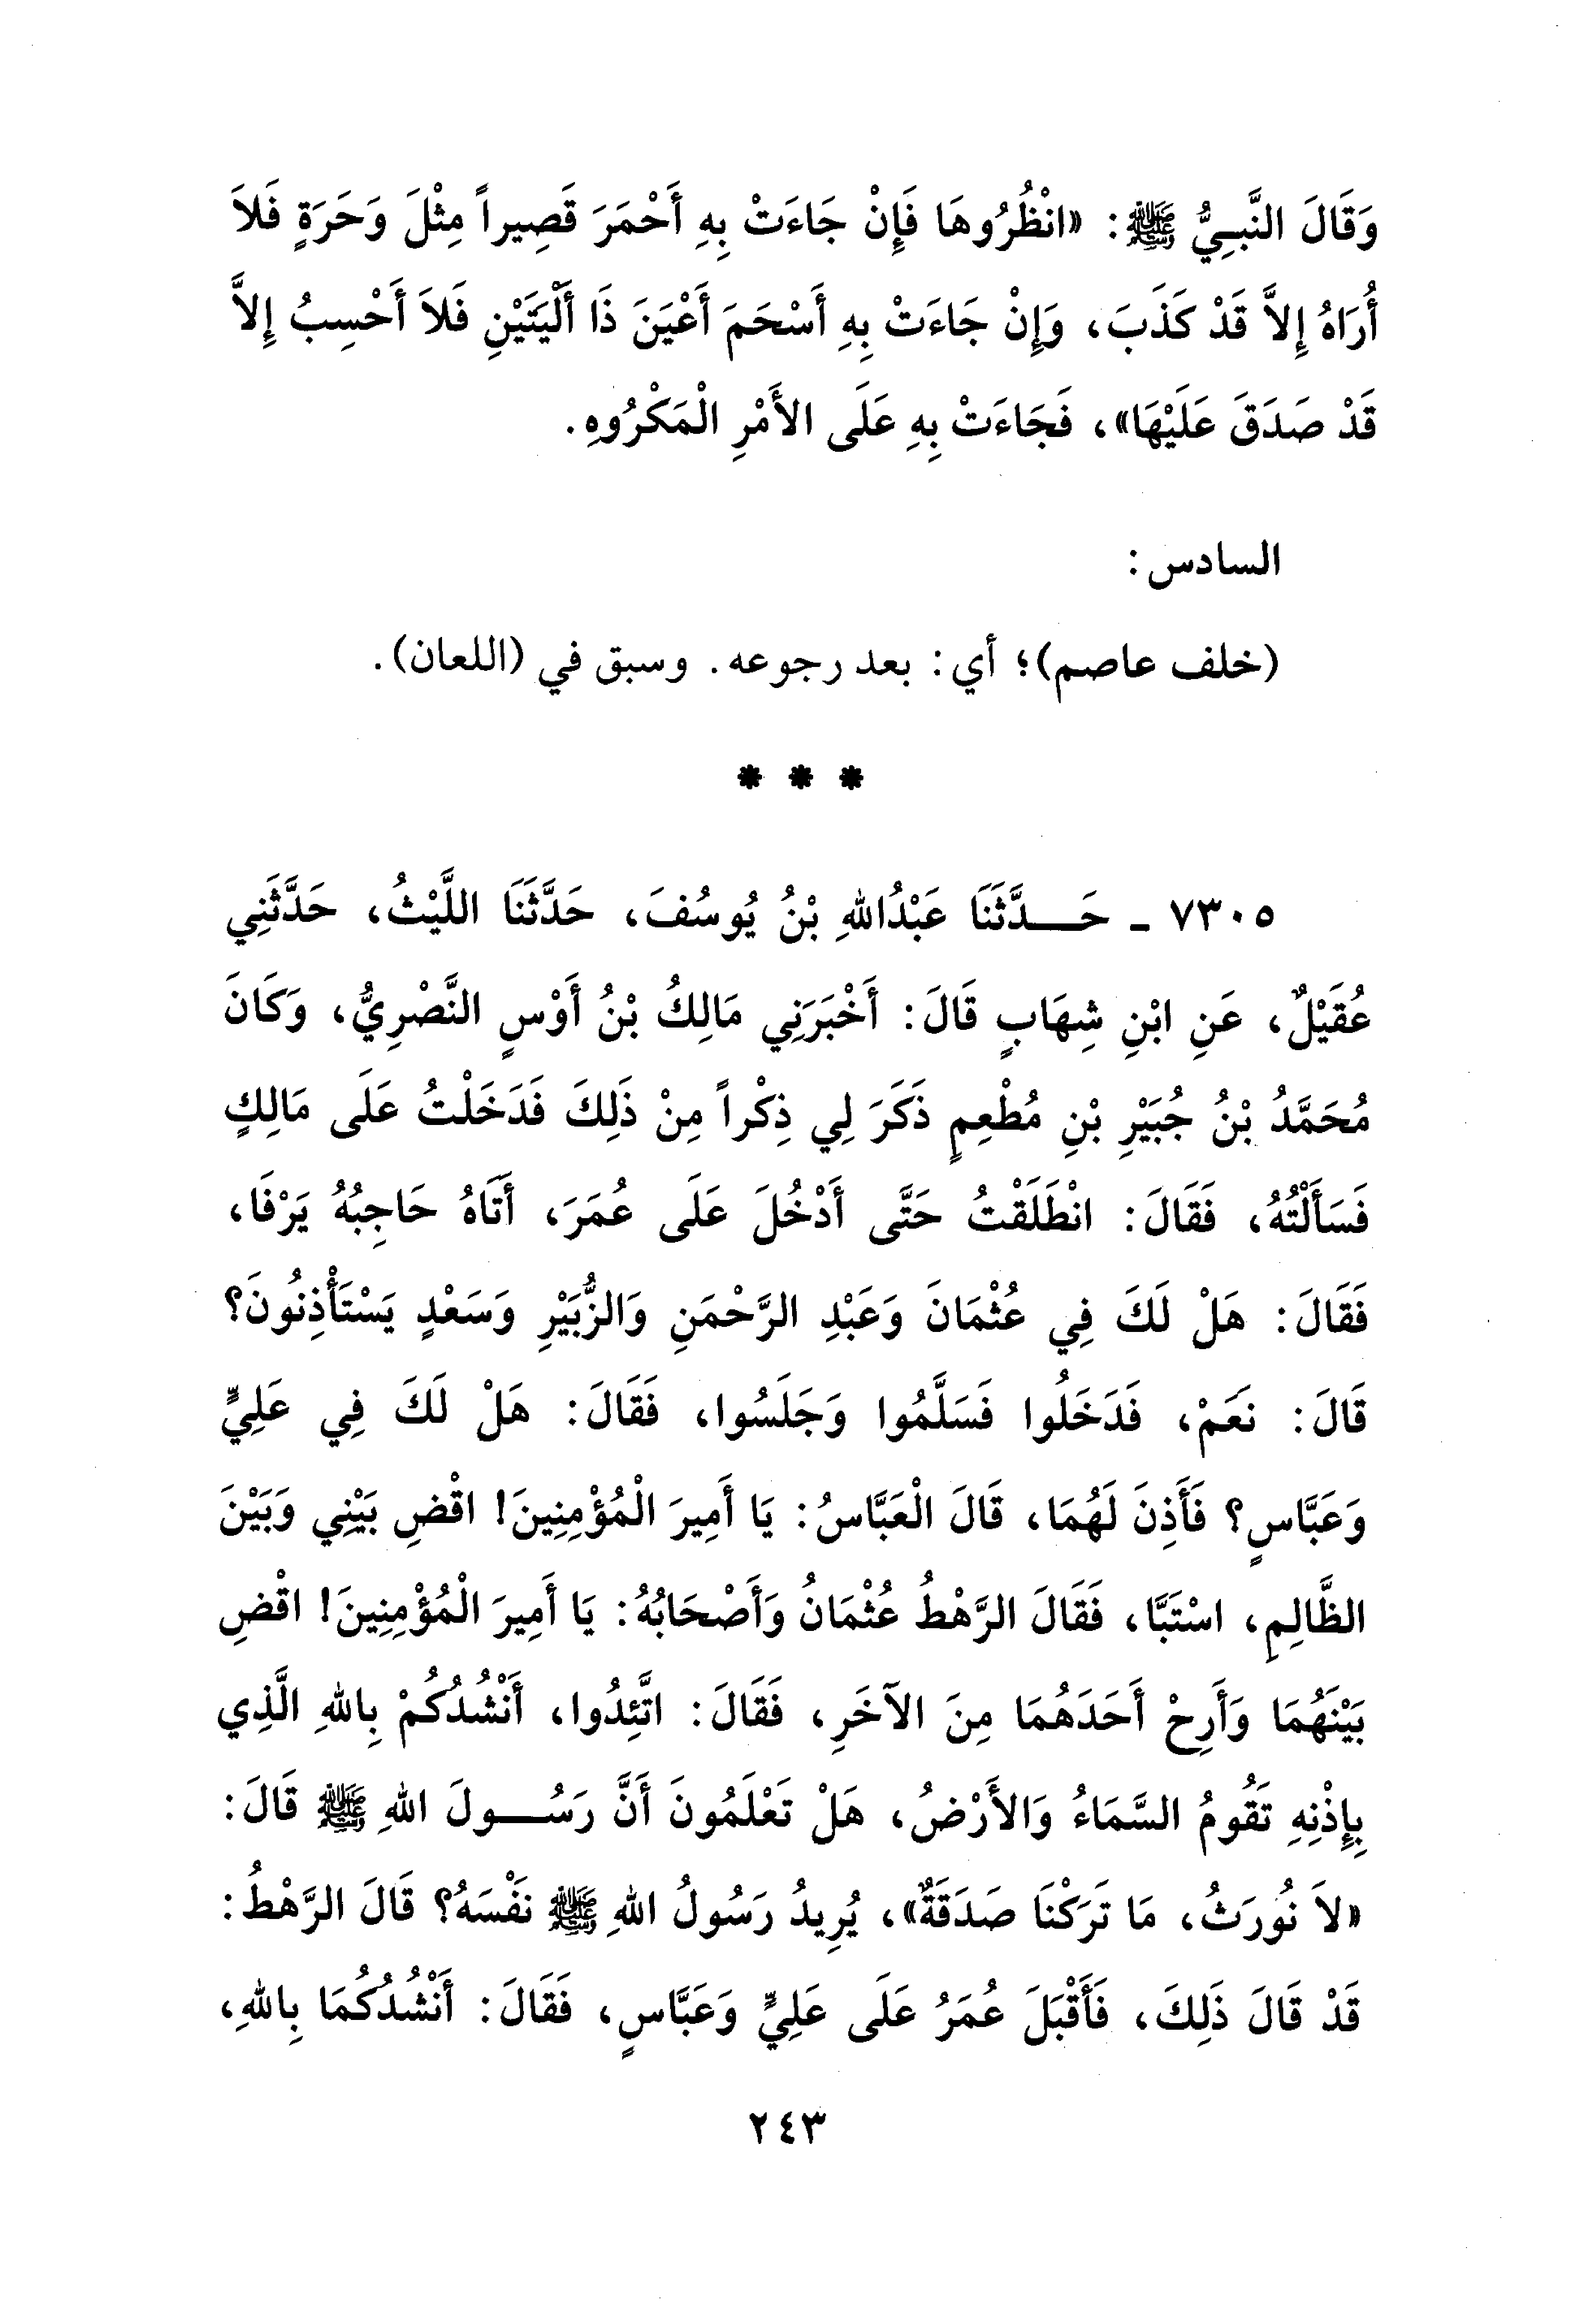 وَقَالَ النَّبِيُّ ﷺ: «انْظُرُوهَا فَإِنْ جَاءَتْ بِهِ أَحْمَرَ قَصِيراً مِثْلَ وَحَرَةٍ فَلاَ
أُرَاهُ إِلاَّ قَدْ كَذَبَ، وَإِنْ جَاءَتْ بِهِ أَسْحَمَ أَعْيَنَ ذَا أَلْيَتَيْنِ فَلاَ أَحْسِبُ إِلاَّ
قَدْ صَدَقَ عَلَيْهَا»، فَجَاءَتْ بِهِ عَلَى الأَمْرِ الْمَكْرُوهِ.
السادس:
(خلف عاصم)؛ أي: بعد رجوعه. وسبق في (اللعان).
* * *
٧٣٠٥ ـ حَـــدَّثَنَا عَبْدُاللهِ بْنُ يُوسُفَ، حَدَّثَنَا اللَّيْثُ، حَدَّثَنِي
عُقَيْلٌ، عَنِ ابْنِ شِهَابٍ قَالَ: أَخْبَرَنِي مَالِكُ بْنُ أَوْسٍ النَّصْرِيُّ، وَكَانَ
مُحَمَّدُ بْنُ جُبَيْرِ بْنِ مُطْعِمٍ ذَكَرَ لِي ذِكْراً مِنْ ذَلِكَ فَدَخَلْتُ عَلَى مَالِكٍ
فَسَأَلْتُهُ، فَقَالَ: انْطَلَقْتُ حَتَّى أَدْخُلَ عَلَى عُمَرَ، أَتَاهُ حَاجِبُهُ يَرْفَا،
فَقَالَ: هَلْ لَكَ فِي عُثْمَانَ وَعَبْدِ الرَّحْمَنِ وَالزُّبَيْرِ وَسَعْدٍ يَسْتَأْذِنُونَ؟
قَالَ: نَعَمْ، فَدَخَلُوا فَسَلَّمُوا وَجَلَسُوا، فَقَالَ: هَلْ لَكَ فِي عَلِيٍّ
وَعَبَّاسٍ؟ فَأَذِنَ لَهُمَا، قَالَ الْعَبَّاسُ: يَا أَمِيرَ الْمُؤْمِنِينَ! اقْضِ بَيْنِي وَبَيْنَ
الظَّالِمِ، اسْتَبَّا، فَقَالَ الرَّهْطُ عُثْمَانُ وَأَصْحَابُهُ: يَا أَمِيرَ الْمُؤْمِنِينَ! اقْضِ
بَيْنَهُمَا وَأَرِحْ أَحَدَهُمَا مِنَ الآخَرِ، فَقَالَ: اتَّئِدُوا، أَنْشُدُكُمْ بِاللهِ الَّذِي
بِإِذْنِهِ تَقُومُ السَّمَاءُ وَالأَرْضُ، هَلْ تَعْلَمُونَ أَنَّ رَسُـــولَ اللهِ ﷺ قَالَ:
«لاَ نُورَثُ، مَا تَرَكْنَا صَدَقَةٌ»، يُرِيدُ رَسُولُ اللهِ ﷺ نَفْسَهُ؟ قَالَ الرَّهْطُ:
قَدْ قَالَ ذَلِكَ، فَأَقْبَلَ عُمَرُ عَلَى عَلِيٍّ وَعَبَّاسٍ، فَقَالَ: أَنْشُدُكُمَا بِاللهِ،
٢٤٣